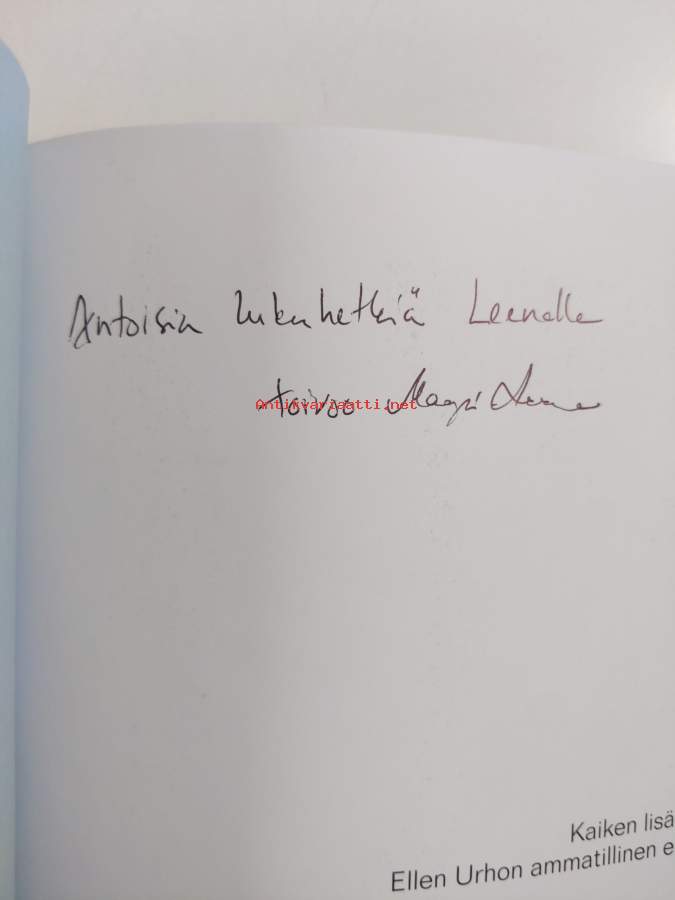 Antoisia lukuhetkiä Leenalle
toivoo Marja
Antikvariaatti.net
Kaiken lisä
Ellen Urhon ammatillinen e